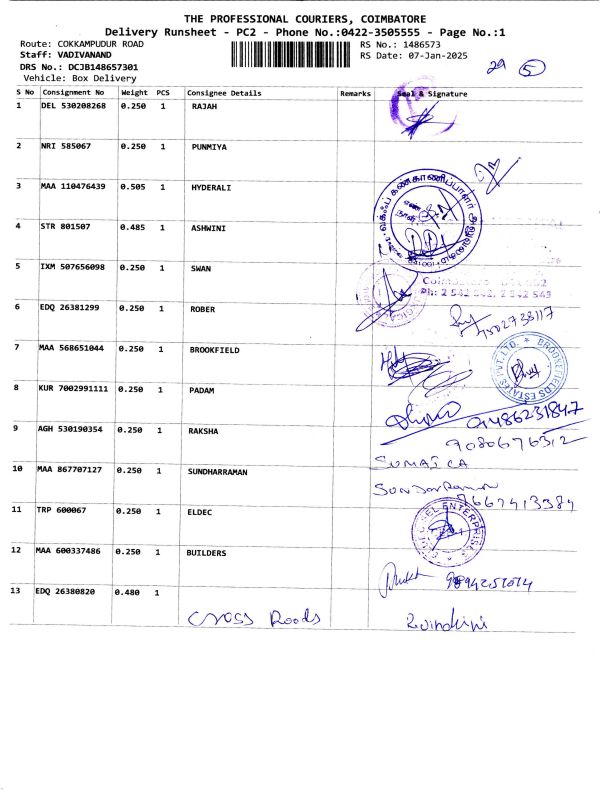 THE PROFESSIONAL COURIERS, COIMBATORE
Delivery Runsheet - PC2 - Phone No.:0422-3505555 - Page No.:1
Route: COKKAMPUDUR ROAD
RS No.: 1486573
Staff: VADIVANAND
RS Date: 07-Jan-2025
DRS No.: DCJB148657301
Vehicle: Box Delivery
29 5
S No Consignment No Weight PCS Consignee Details Remarks Seal & Signature
1 DEL 530208268 0.250 1 RAJAH
2 NRI 585067 0.250 1 PUNMIYA
3 MAA 110476439 0.505 1 HYDERALI
4 STR 801507 0.485 1 ASHWINI
5 IXM 507656098 0.250 1 SWAN
6 EDQ 26381299 0.250 1 ROBER
7 MAA 568651044 0.250 1 BROOKFIELD
BROOKEFIELDS ESTATES PVT. LTD.
8 KUR 7002991111 0.250 1 PADAM
9486231847
9 AGH 530190354 0.250 1 RAKSHA
9080676312
10 MAA 867707127 0.250 1 SUNDHARRAMAN
11 TRP 600067 0.250 1 ELDEC
12 MAA 600337486 0.250 1 BUILDERS
13 EDQ 26380820 0.480 1
Cross Roads